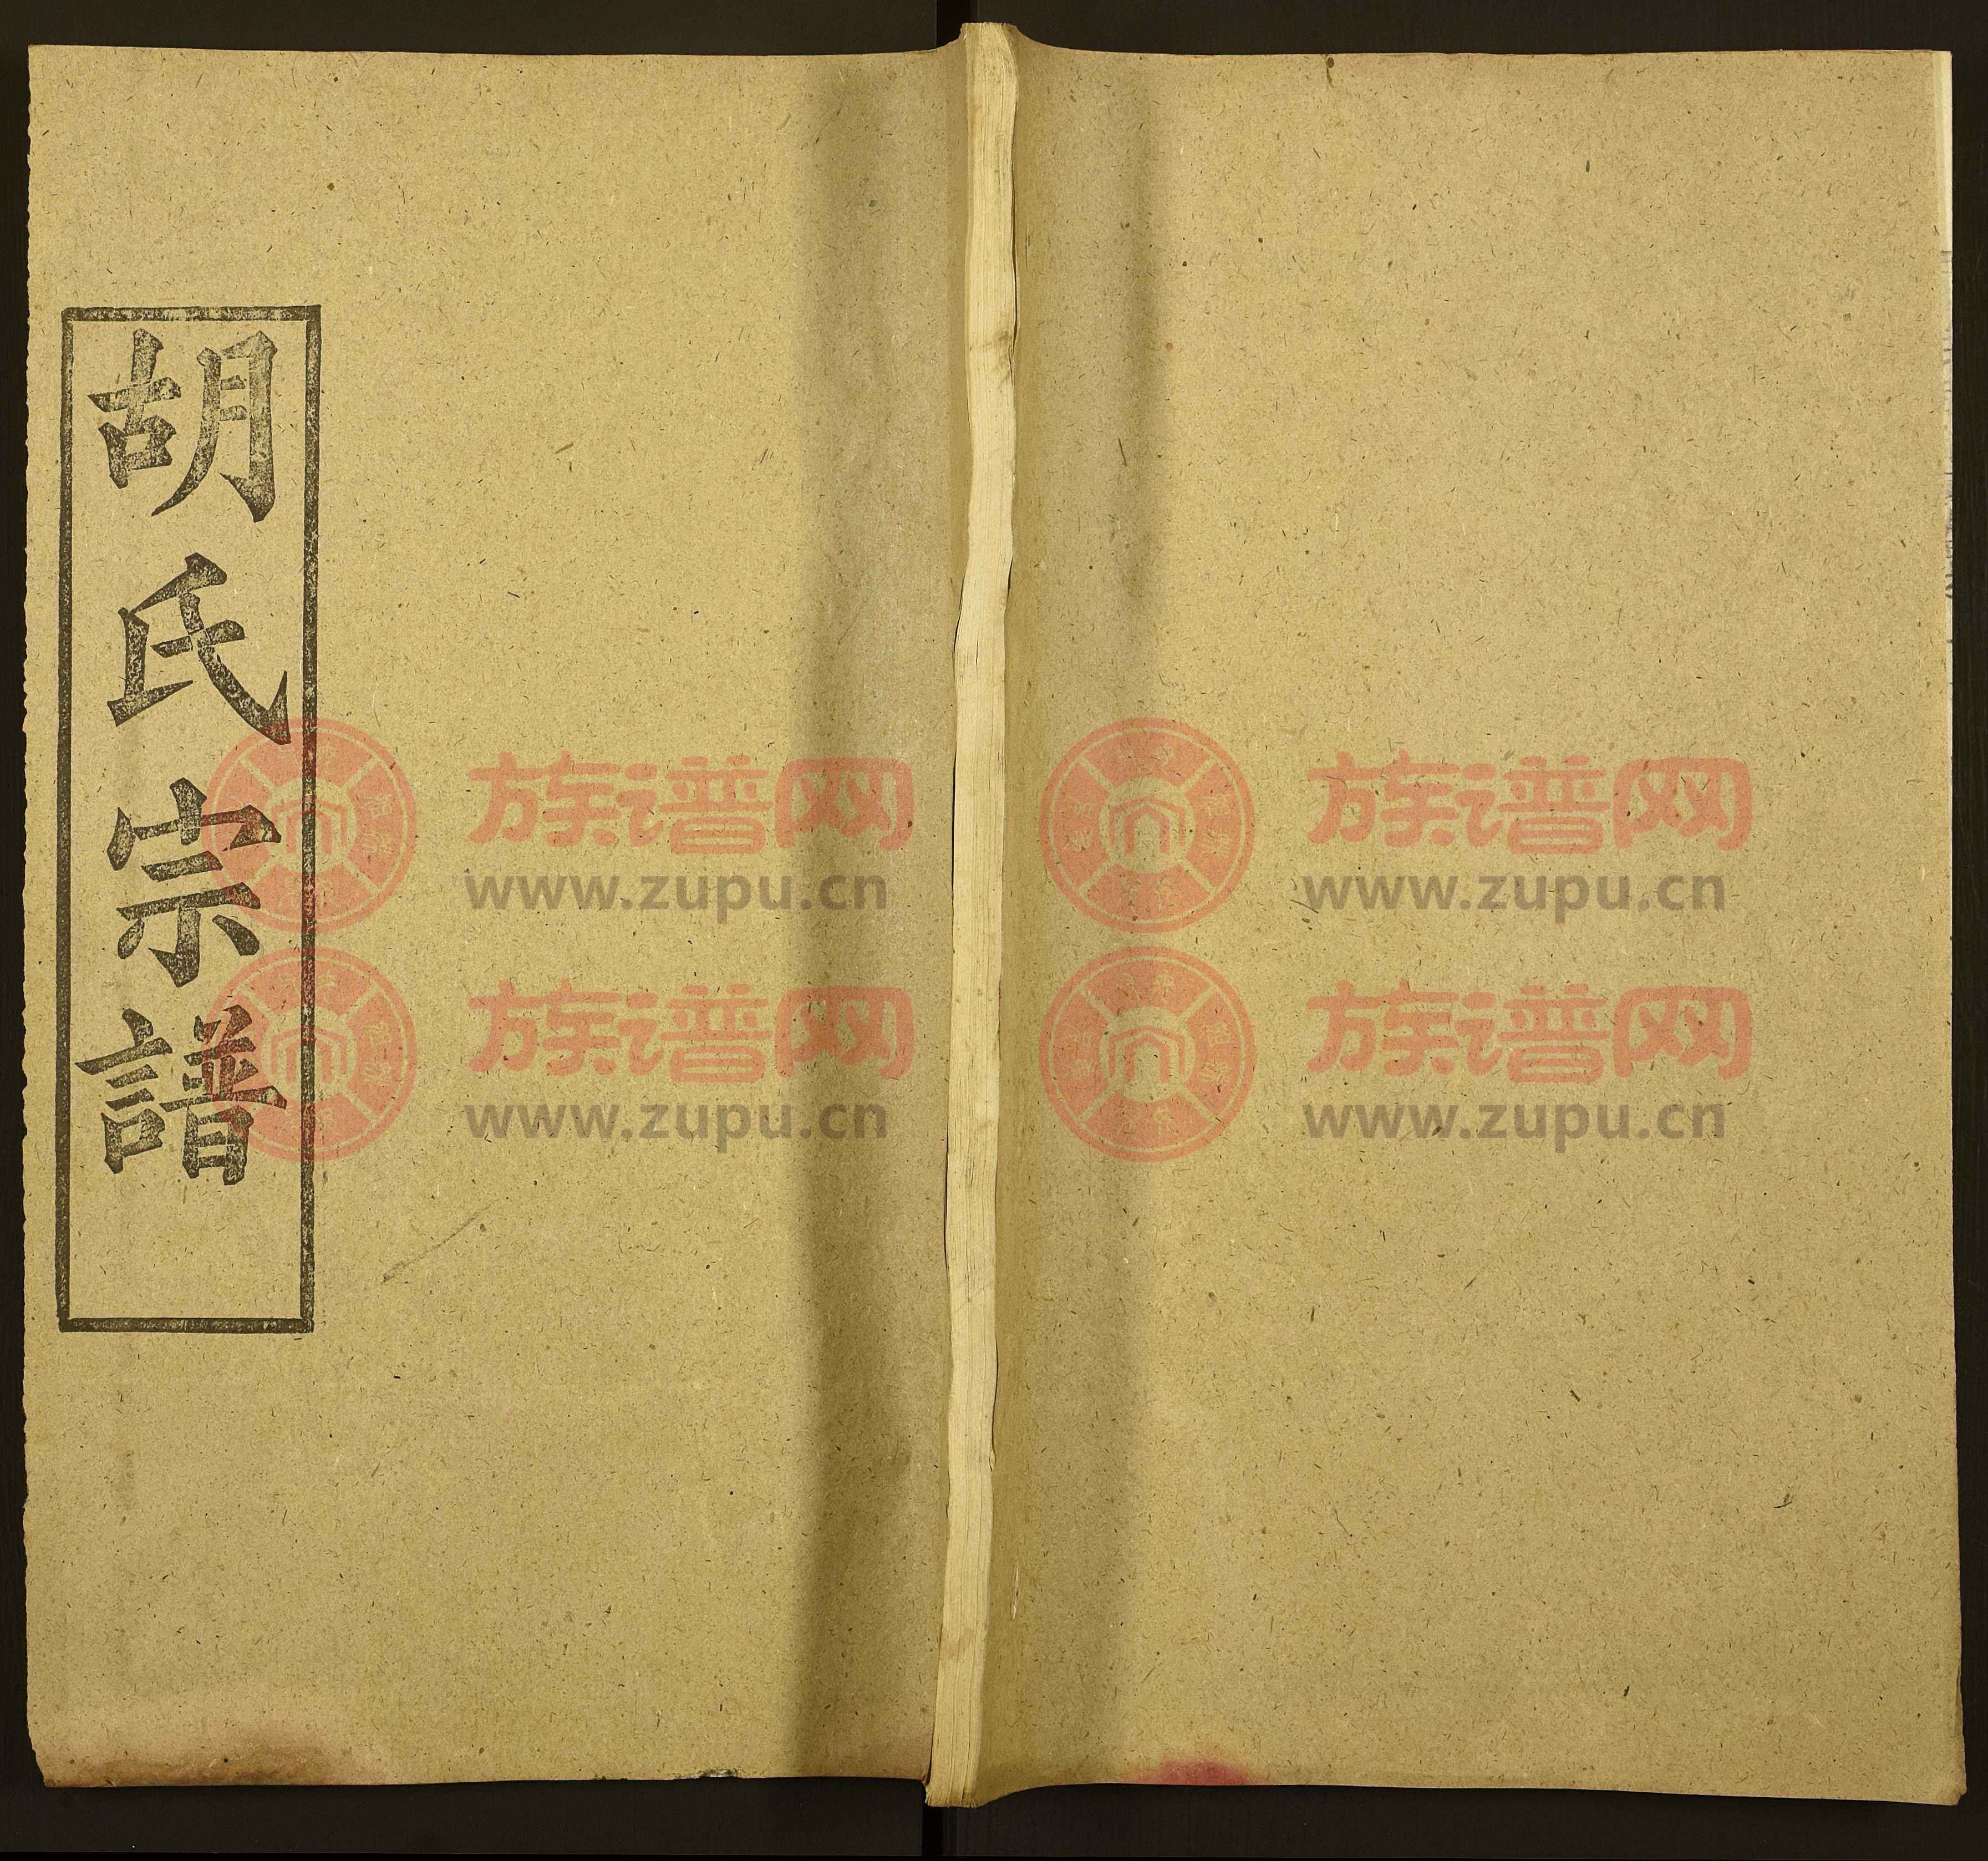 胡氏宗譜
族谱网
www.zupu.cn
族谱网
www.zupu.cn
族谱网
www.zupu.cn
族谱网
www.zupu.cn